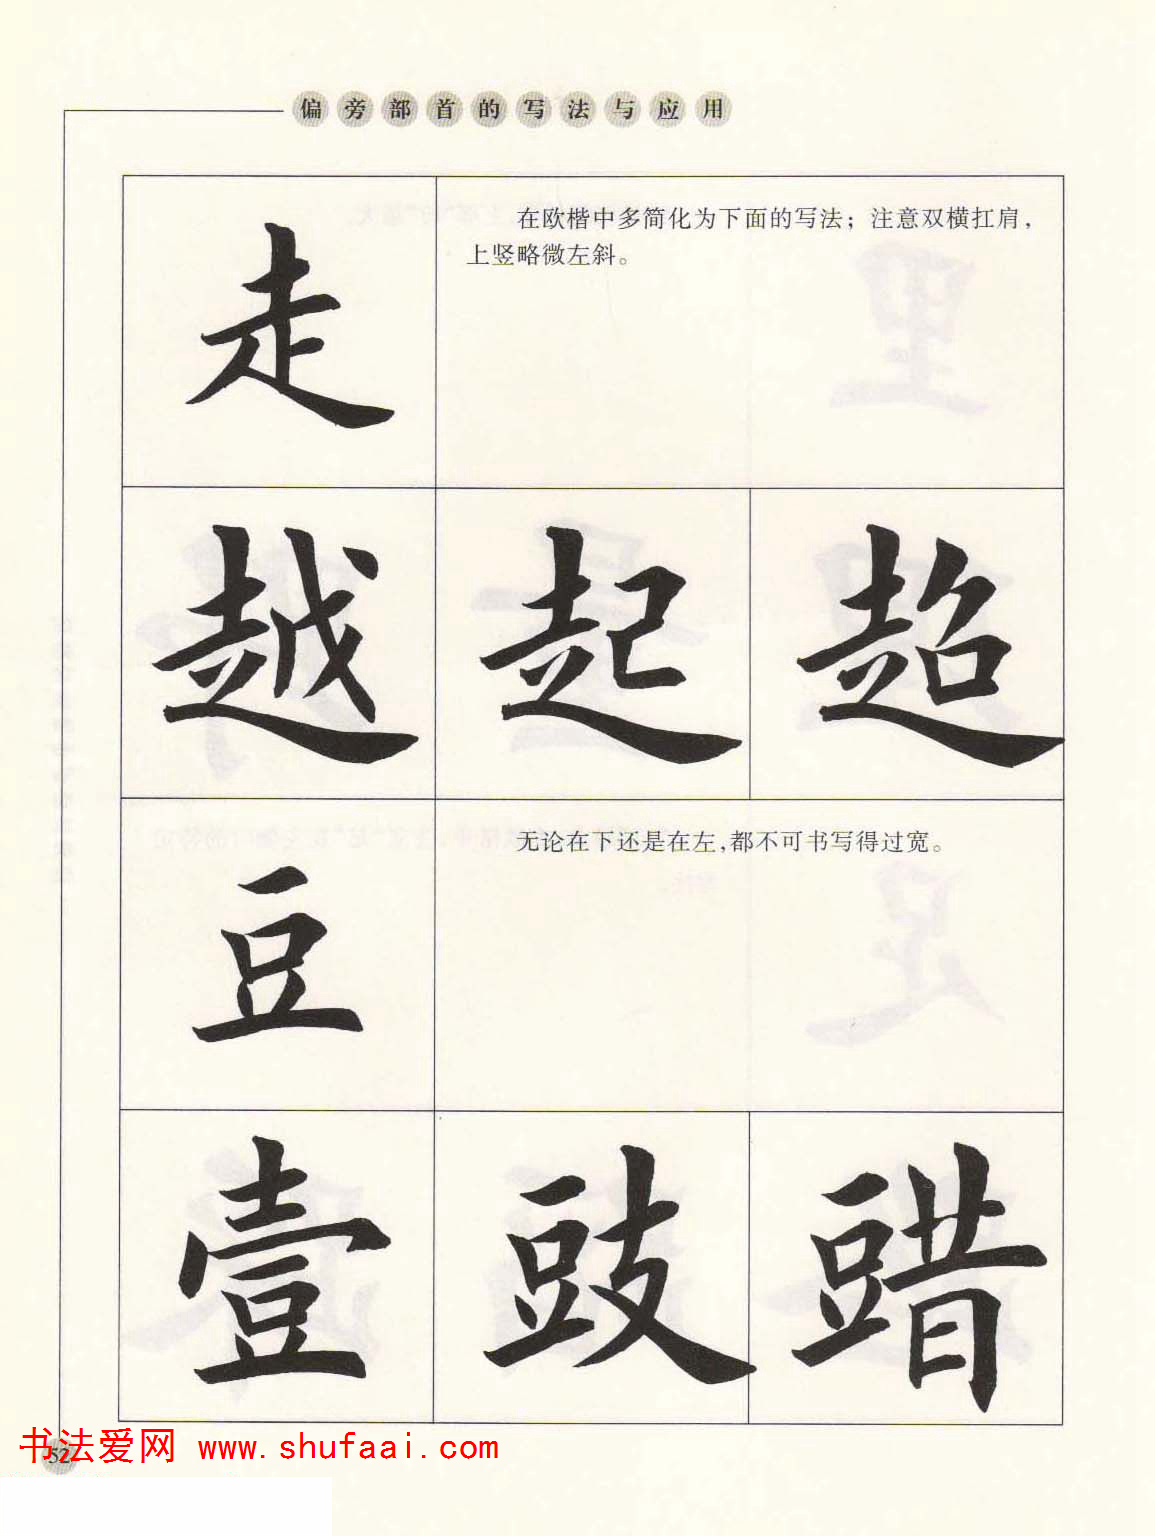 偏旁部首的写法与应用
走
在欧楷中多简化为下面的写法；注意双横扛肩，
上竖略微左斜。
越 起 超
豆
无论在下还是在左，都不可书写得过宽。
壹 豉
书法爱网 www.shufaai.com
52